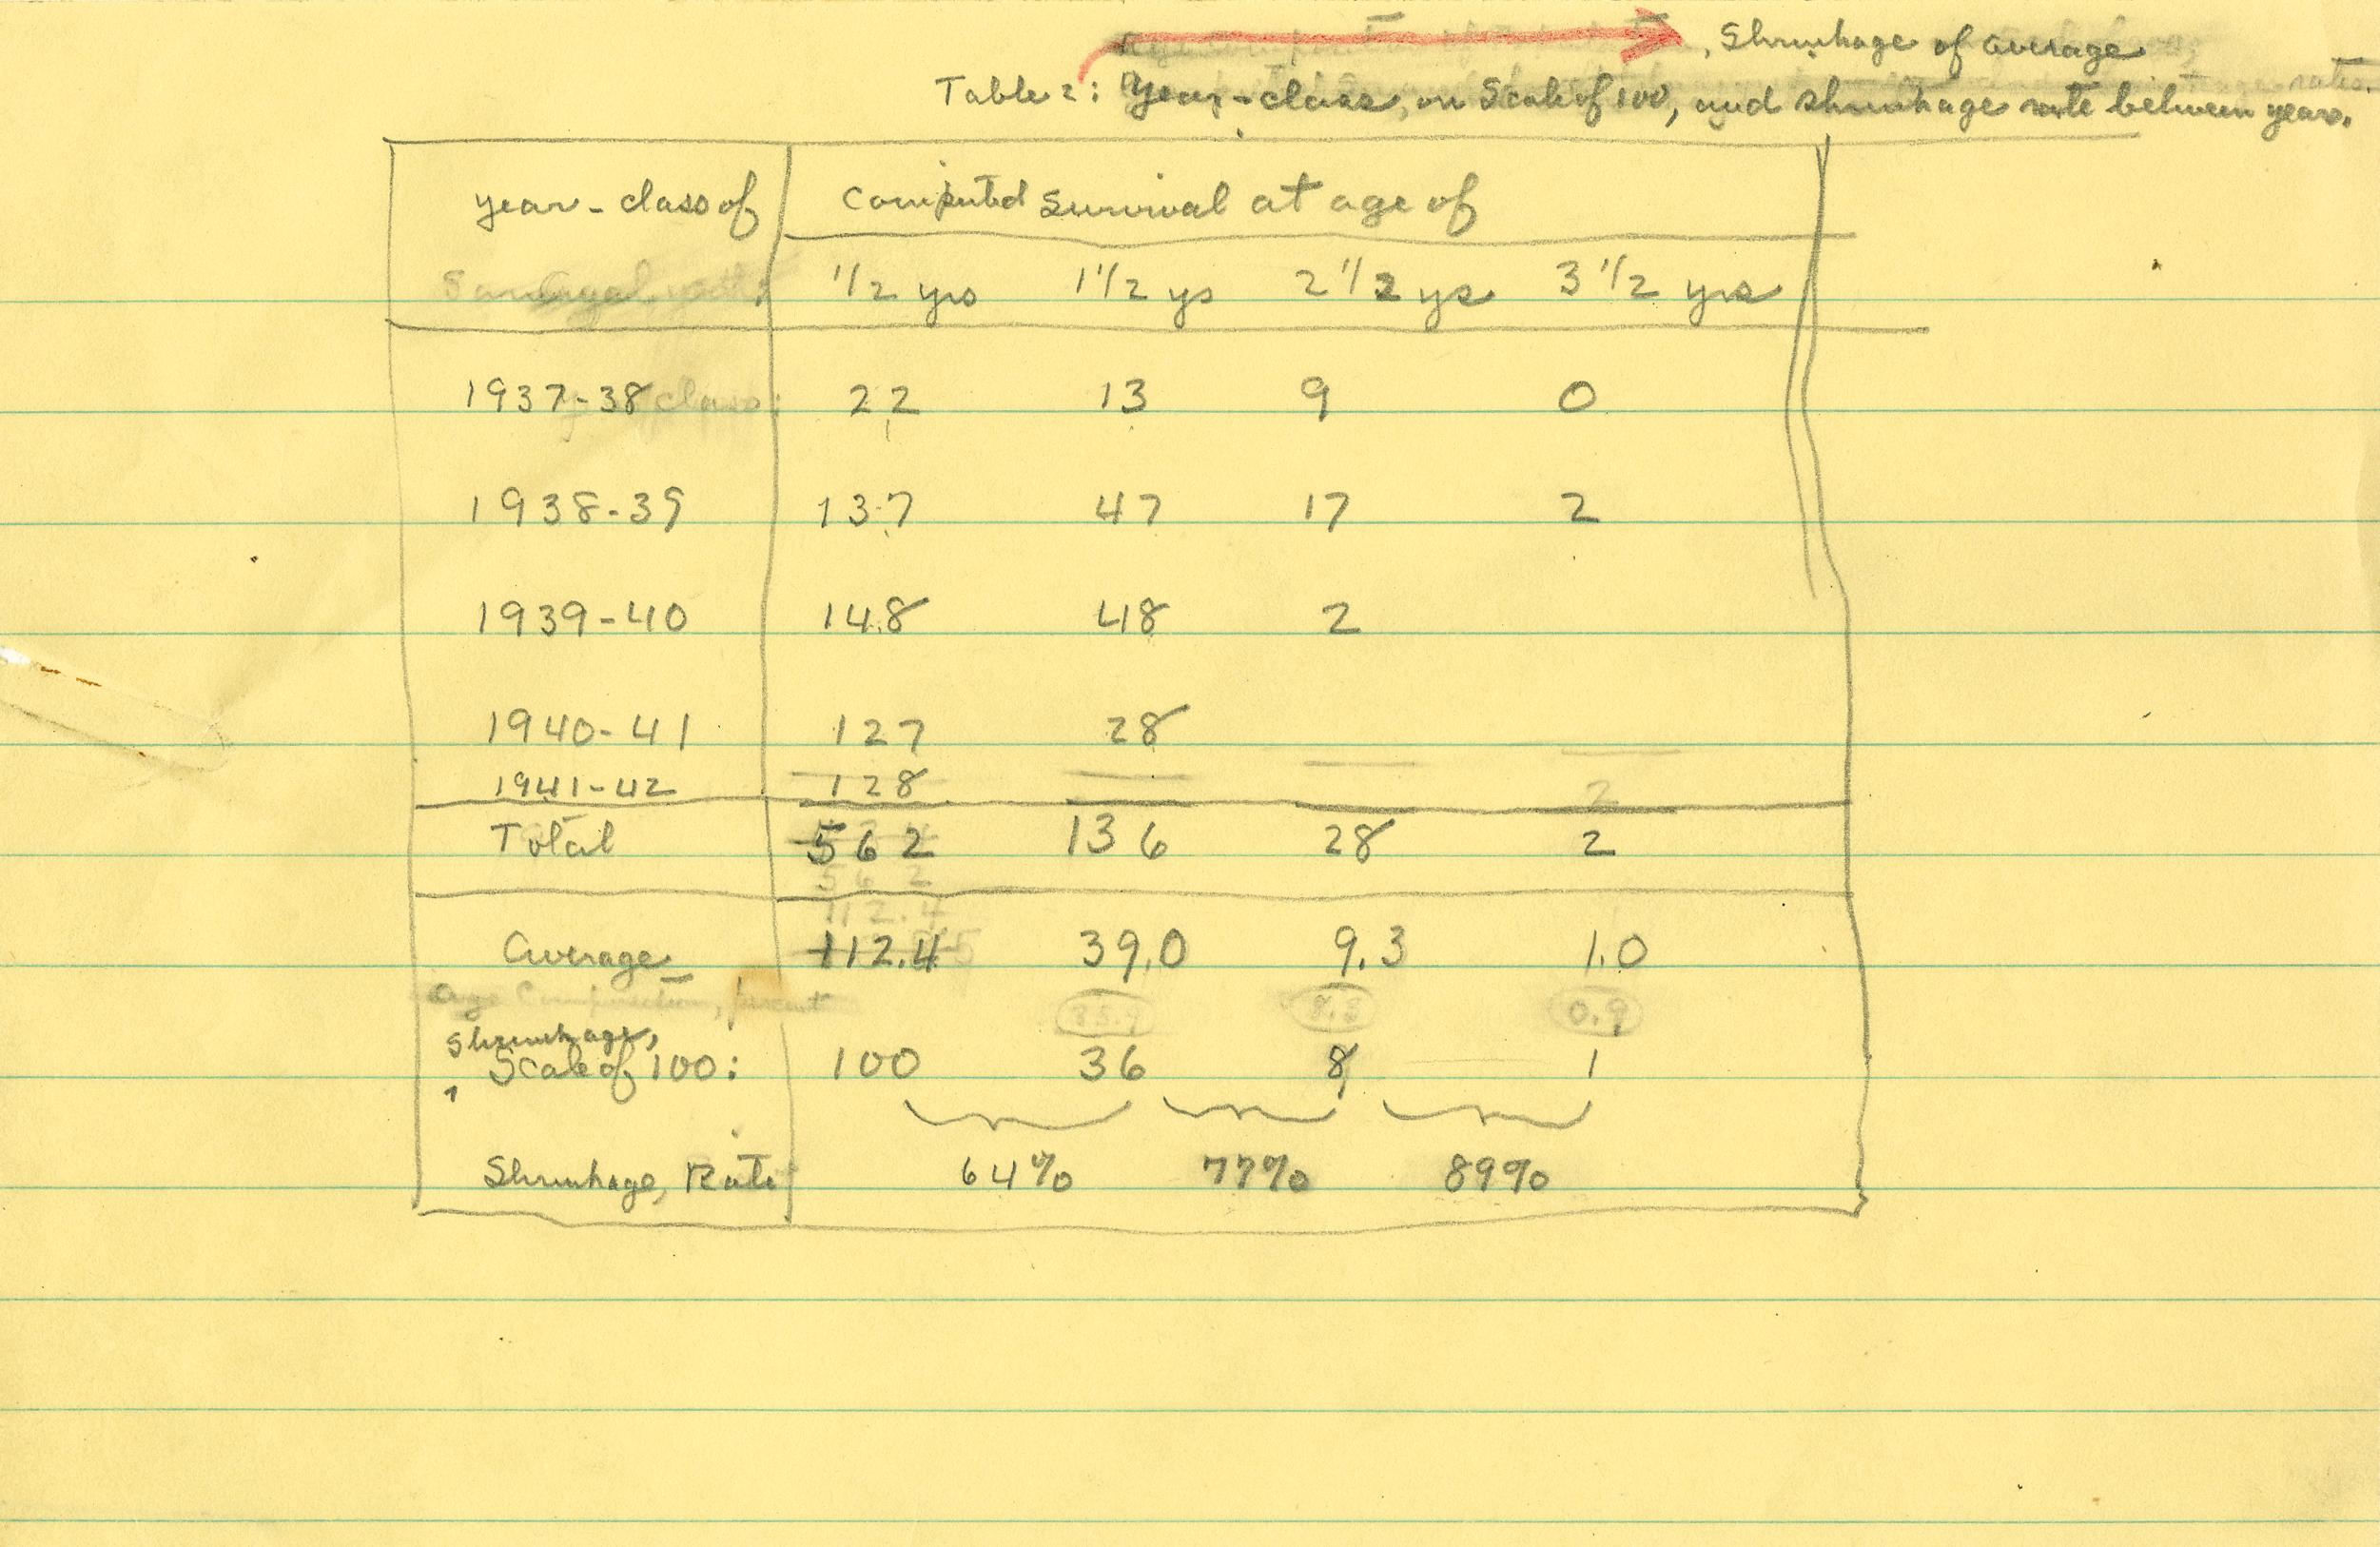 , Shrinkage of average
Table 2: Year-class, on Scale of 100, and shrinkage rate between years.
year-class of Computed Survival at age of
1/2 yrs 1 1/2 ys 2 1/2 ys 3 1/2 yrs
1937-38 22 13 9 0
1938-39 137 47 17 2
1939-40 148 48 2
1940-41 127 28
1941-42 128
2
Total 562 136 28 2
562
112.4
Average 112.4 39.0 9.3 1.0
Age Composition, percent 8.5 0.9
Shrinkage,
Scale of 100: 100 36 8 1
Shrinkage, Rate 64% 77% 89%